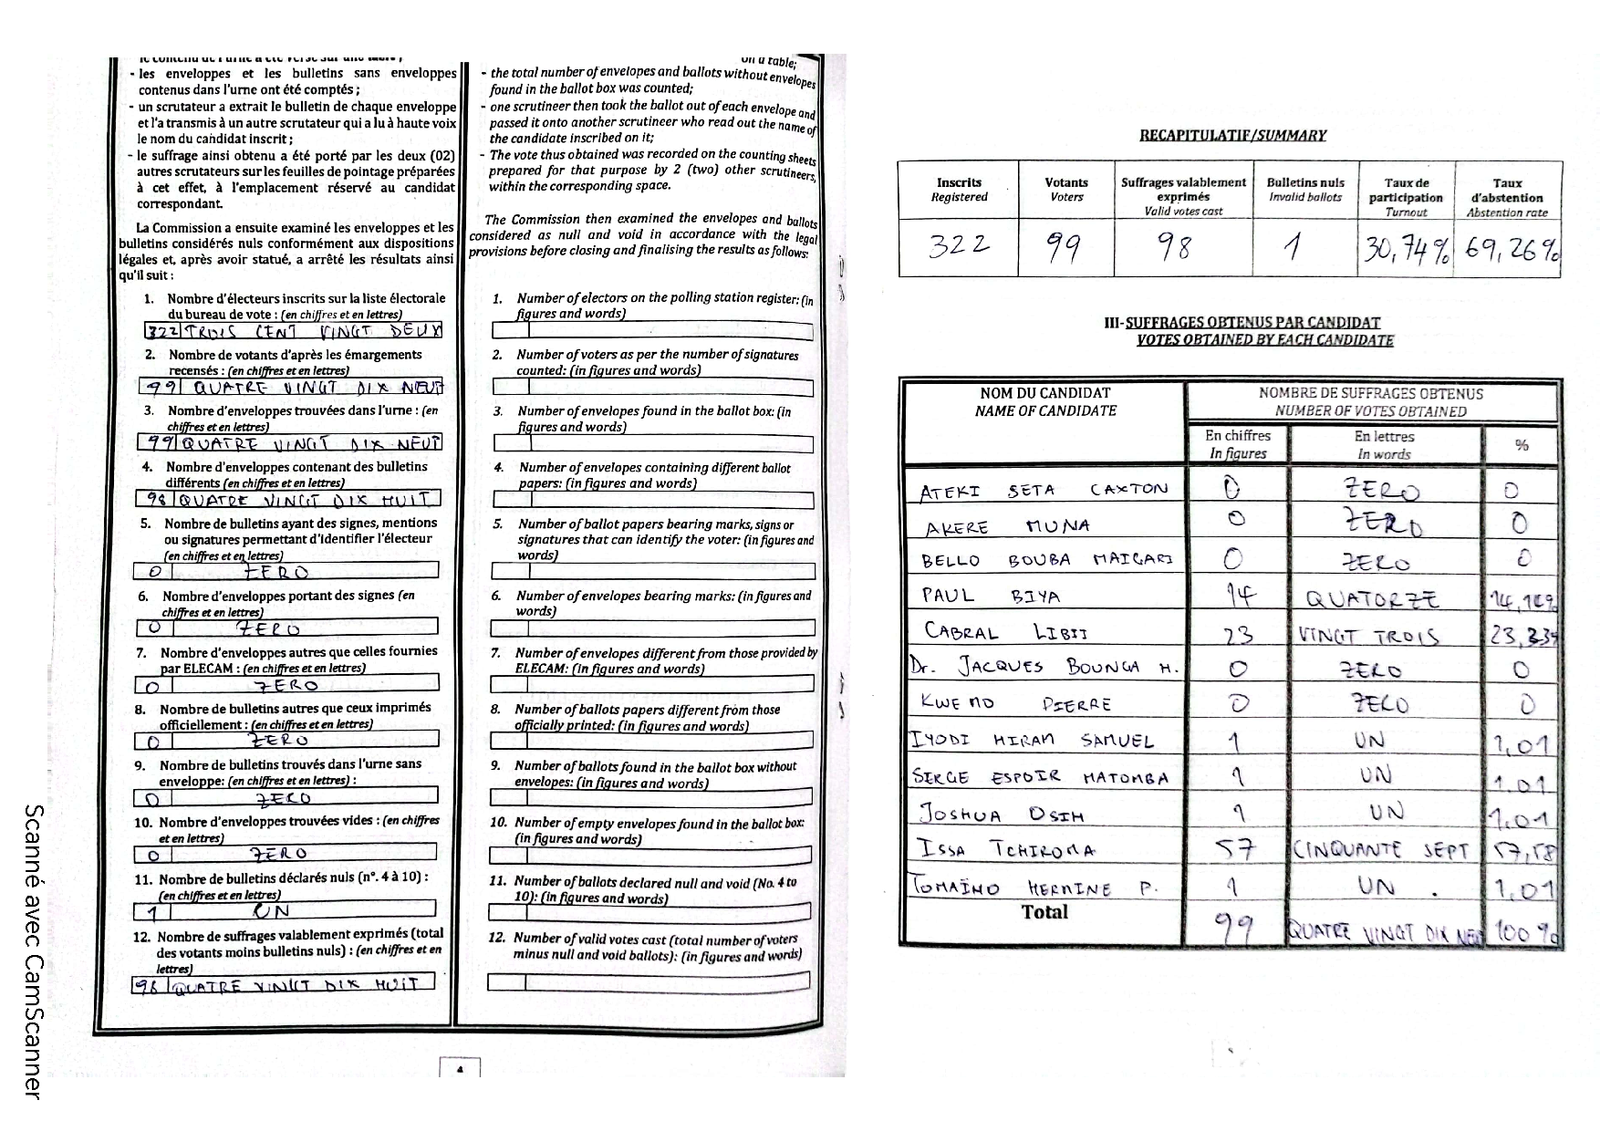 le contenu de l'urne a été versé sur une table ;
- les enveloppes et les bulletins sans enveloppes
contenus dans l'urne ont été comptés ;
- un scrutateur a extrait le bulletin de chaque enveloppe
et l'a transmis à un autre scrutateur qui a lu à haute voix
le nom du candidat inscrit ;
- le suffrage ainsi obtenu a été porté par les deux (02)
autres scrutateurs sur les feuilles de pointage préparées
à cet effet, à l'emplacement réservé au candidat
correspondant.
La Commission a ensuite examiné les enveloppes et les
bulletins considérés nuls conformément aux dispositions
légales et, après avoir statué, a arrêté les résultats ainsi
qu'il suit :
1. Nombre d'électeurs inscrits sur la liste électorale
du bureau de vote : (en chiffres et en lettres)
322 TROIS CENT VINGT DEUX
2. Nombre de votants d'après les émargements
recensés : (en chiffres et en lettres)
99 QUATRE VINGT DIX NEUF
3. Nombre d'enveloppes trouvées dans l'urne : (en
chiffres et en lettres)
99 QUATRE VINGT DIX NEUF
4. Nombre d'enveloppes contenant des bulletins
différents (en chiffres et en lettres)
98 QUATRE VINGT DIX HUIT
5. Nombre de bulletins ayant des signes, mentions
ou signatures permettant d'identifier l'électeur
(en chiffres et en lettres)
0 ZERO
6. Nombre d'enveloppes portant des signes (en
chiffres et en lettres)
0 ZERO
7. Nombre d'enveloppes autres que celles fournies
par ELECAM : (en chiffres et en lettres)
0 ZERO
8. Nombre de bulletins autres que ceux imprimés
officiellement : (en chiffres et en lettres)
0 ZERO
9. Nombre de bulletins trouvés dans l'urne sans
enveloppe: (en chiffres et en lettres) :
0 ZERO
10. Nombre d'enveloppes trouvées vides : (en chiffres
et en lettres)
0 ZERO
11. Nombre de bulletins déclarés nuls (n°. 4 à 10) :
(en chiffres et en lettres)
1 UN
12. Nombre de suffrages valablement exprimés (total
des votants moins bulletins nuls) : (en chiffres et en
lettres)
98 QUATRE VINGT DIX HUIT
on a table;
- the total number of envelopes and ballots without envelopes
found in the ballot box was counted;
- one scrutineer then took the ballot out of each envelope and
passed it onto another scrutineer who read out the name of
the candidate inscribed on it;
- The vote thus obtained was recorded on the counting sheets
prepared for that purpose by 2 (two) other scrutineers,
within the corresponding space.
The Commission then examined the envelopes and ballots
considered as null and void in accordance with the legal
provisions before closing and finalising the results as follows:
1. Number of electors on the polling station register: (in
figures and words)
2. Number of voters as per the number of signatures
counted: (in figures and words)
3. Number of envelopes found in the ballot box: (in
figures and words)
4. Number of envelopes containing different ballot
papers: (in figures and words)
5. Number of ballot papers bearing marks, signs or
signatures that can identify the voter: (in figures and
words)
6. Number of envelopes bearing marks: (in figures and
words)
7. Number of envelopes different from those provided by
ELECAM: (in figures and words)
8. Number of ballots papers different from those
officially printed: (in figures and words)
9. Number of ballots found in the ballot box without
envelopes: (in figures and words)
10. Number of empty envelopes found in the ballot box:
(in figures and words)
11. Number of ballots declared null and void (No. 4 to
10): (in figures and words)
12. Number of valid votes cast (total number of voters
minus null and void ballots): (in figures and words)
4
Scanné avec CamScanner
RECAPITULATIF/SUMMARY
Inscrits Registered Votants Voters Suffrages valablement exprimés Valid votes cast Bulletins nuls Invalid ballots Taux de participation Turnout Taux d'abstention Abstention rate
322 99 98 1 30,74% 69,26%
III- SUFFRAGES OBTENUS PAR CANDIDAT
VOTES OBTAINED BY EACH CANDIDATE
NOM DU CANDIDAT NOMBRE DE SUFFRAGES OBTENUS
NAME OF CANDIDATE NUMBER OF VOTES OBTAINED
En chiffres En lettres %
In figures In words
ATEKI SETA CAXTON 0 ZERO 0
AKERE MUNA 0 ZERO 0
BELLO BOUBA MAIGARI 0 ZERO 0
PAUL BIYA 14 QUATORZE 14,14%
CABRAL LIBII 23 VINGT TROIS 23,23%
Dr. JACQUES BOUNGA H. 0 ZERO 0
KWEMO PIERRE 0 ZERO 0
IYODI HIRAM SAMUEL 1 UN 1,01
SERGE ESPOIR MATOMBA 1 UN 1,01
JOSHUA OSIH 1 UN 1,01
ISSA TCHIROMA 57 CINQUANTE SEPT 57,58
TOMAÏNO HERMINE P. 1 UN . 1,01
Total 99 QUATRE VINGT DIX NEUF 100%